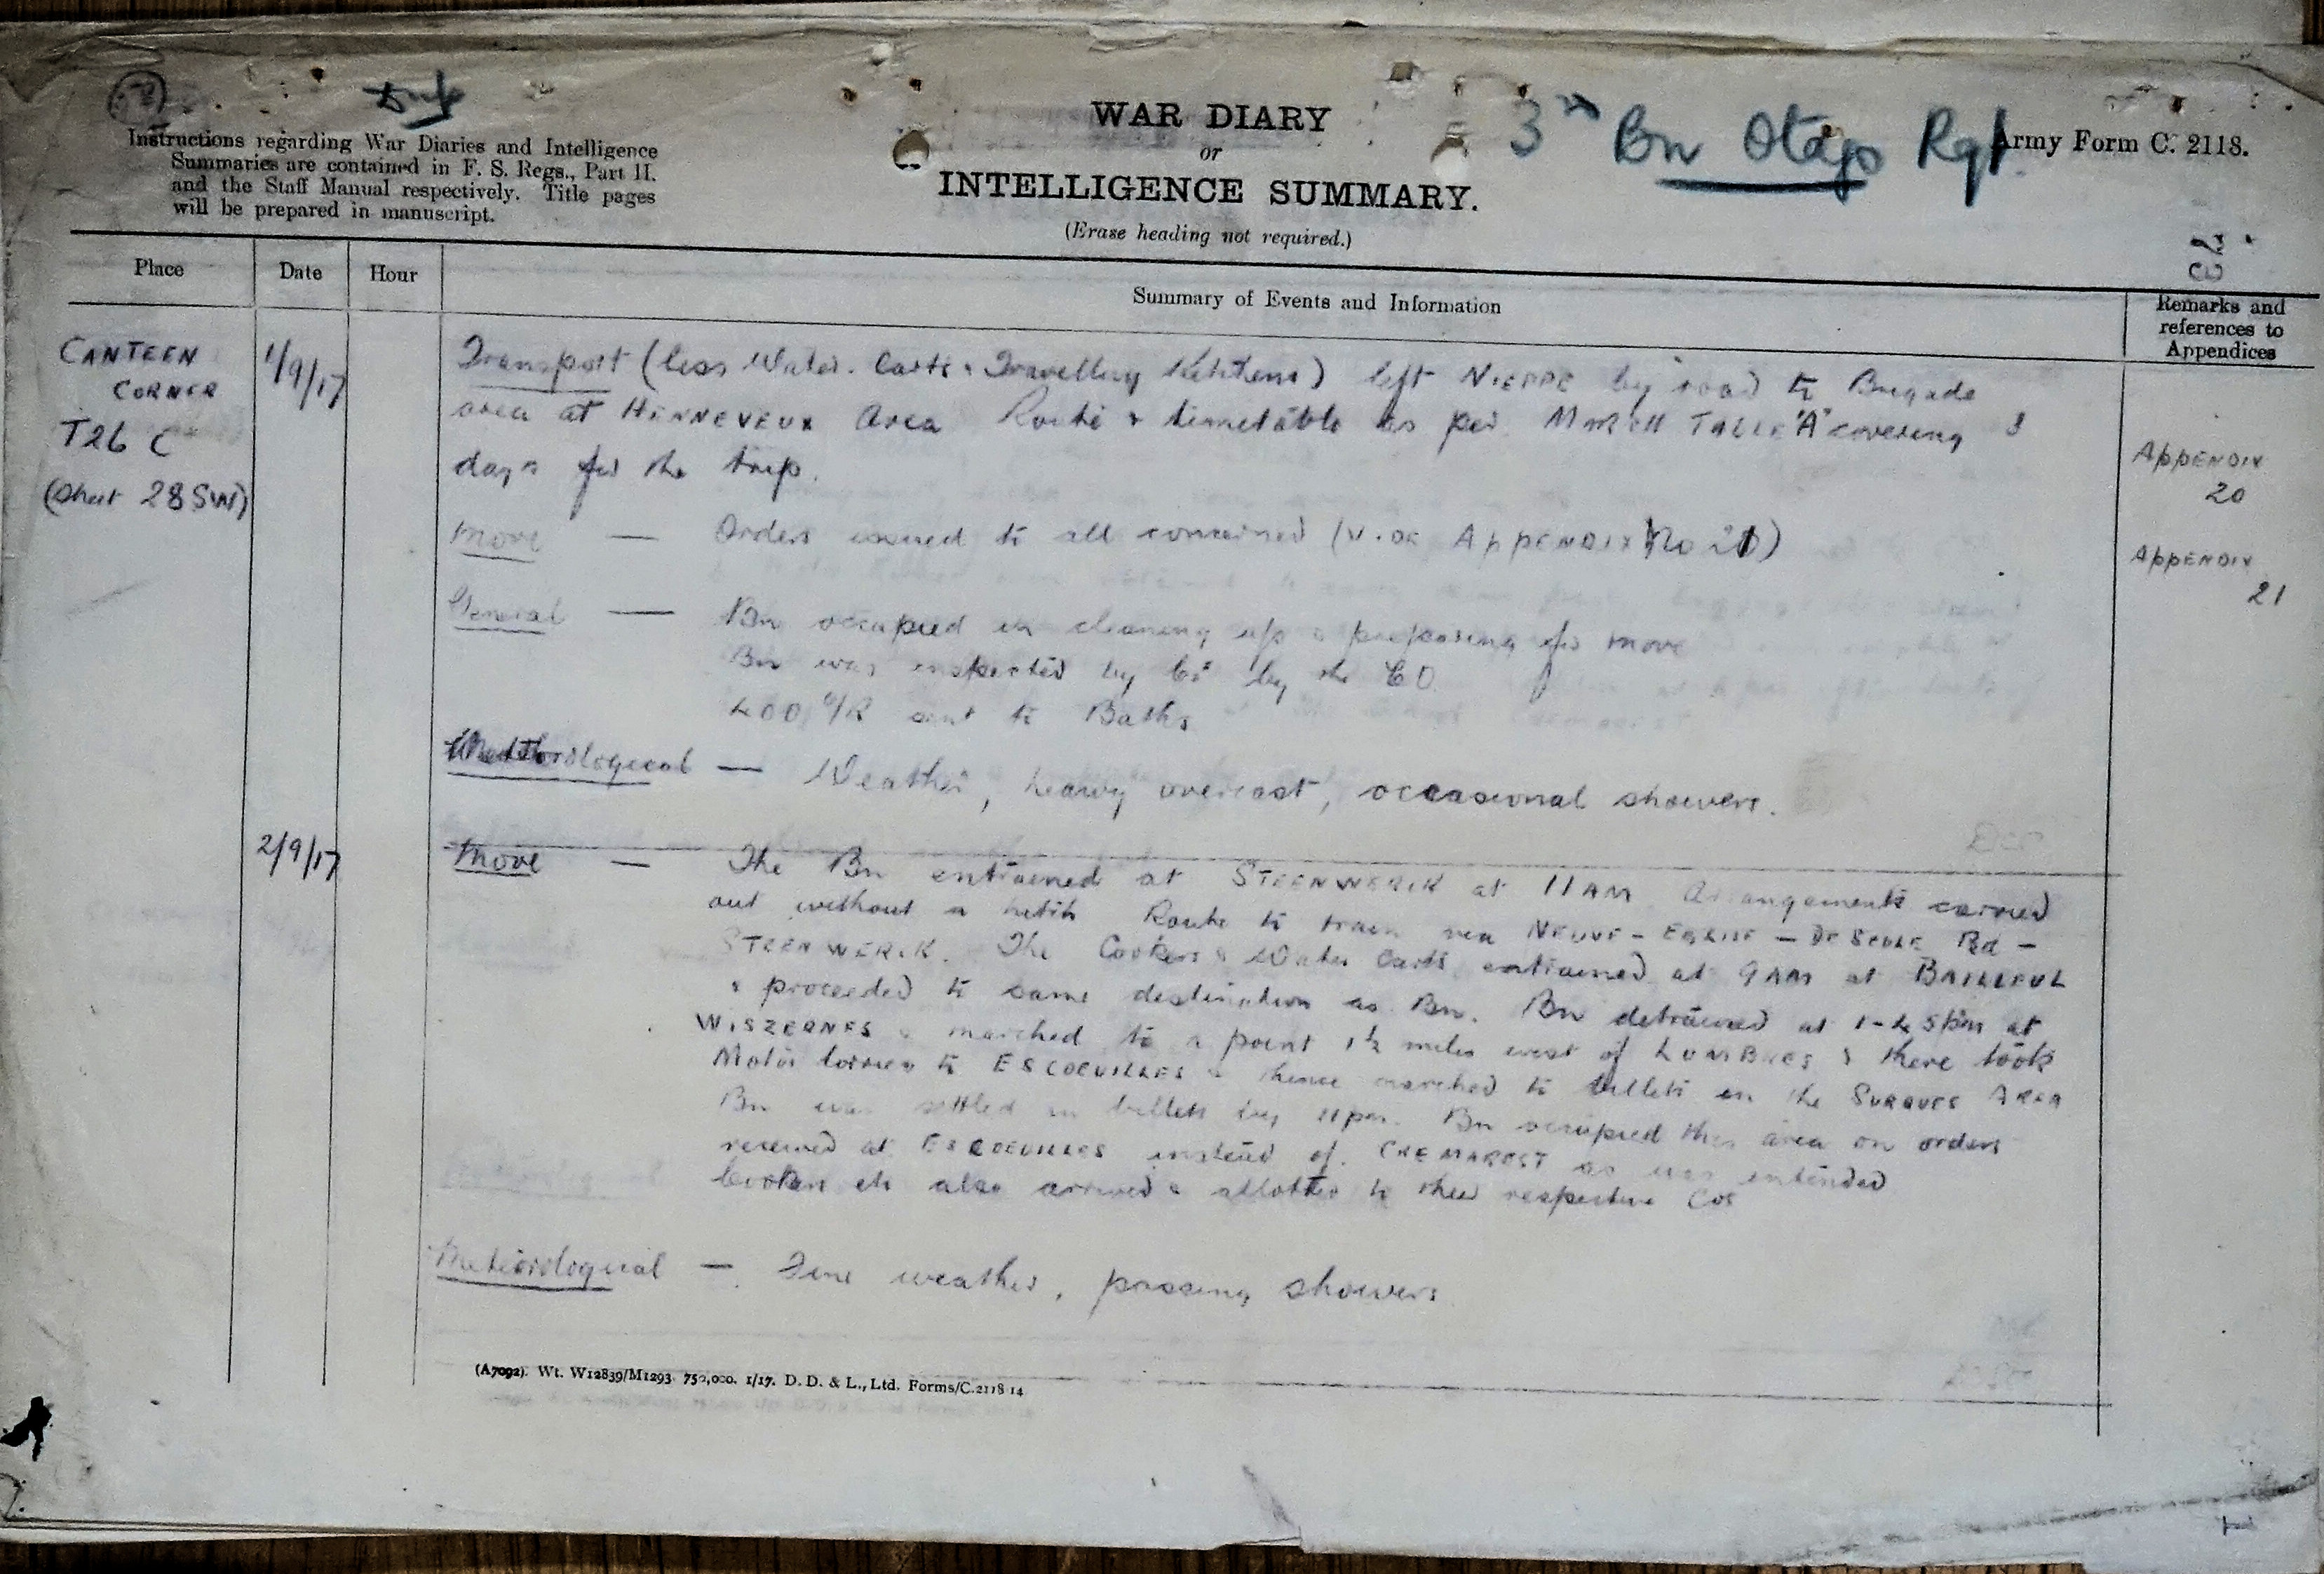 3rd Bn Otago Rgt
Instructions regarding War Diaries and Intelligence
Summaries are contained in F. S. Regs., Part II.
and the Staff Manual respectively. Title pages
will be prepared in manuscript.
WAR DIARY
or
INTELLIGENCE SUMMARY.
(Erase heading not required.)
Army Form C. 2118.
Place
Date
Hour
Summary of Events and Information
Remarks and
references to
Appendices
CANTEEN
CORNER
T26 C
(Sheet 28 SW)
1/9/17
Transport (less Water Carts & Travelling Kitchens) left NIEPPE by road to Brigade
area at HENNEVEUX Area Route & timetable as per MARCH TABLE "A" covering 3
days for the trip.
APPENDIX
20
Move — Orders issued to all concerned (VIDE APPENDIX No 21)
APPENDIX
21
General — Bn occupied in cleaning up & preparing for move
Bn was inspected by Cos by the CO
400 O/R sent to Baths
Meteorological — Weather, heavy overcast, occasional showers.
2/9/17
Move — The Bn entrained at STEENWERCK at 11 AM Arrangements carried
out without a hitch Route to train via NEUVE-EGLISE - DE SEULE Rd -
STEENWERCK. The Cookers & Water Carts entrained at 9 AM at BAILLEUL
& proceeded to same destination as Bn. Bn detrained at 1-45 pm at
WISZERNES & marched to a point 1½ miles west of LUMBRES & there took
Motor lorries to ESCOEUILLES & thence marched to billets in the SURQUES AREA
Bn was settled in billets by 11 pm. Bn occupied this area on orders
received at ESCOEUILLES instead of CREMAREST as was intended
Cookers etc also arrived & allotted to their respective Cos
Meteorological — Fine weather, passing showers
(A7092). Wt. W12839/M1293. 750,000. 1/17. D. D. & L., Ltd. Forms/C.2118/14